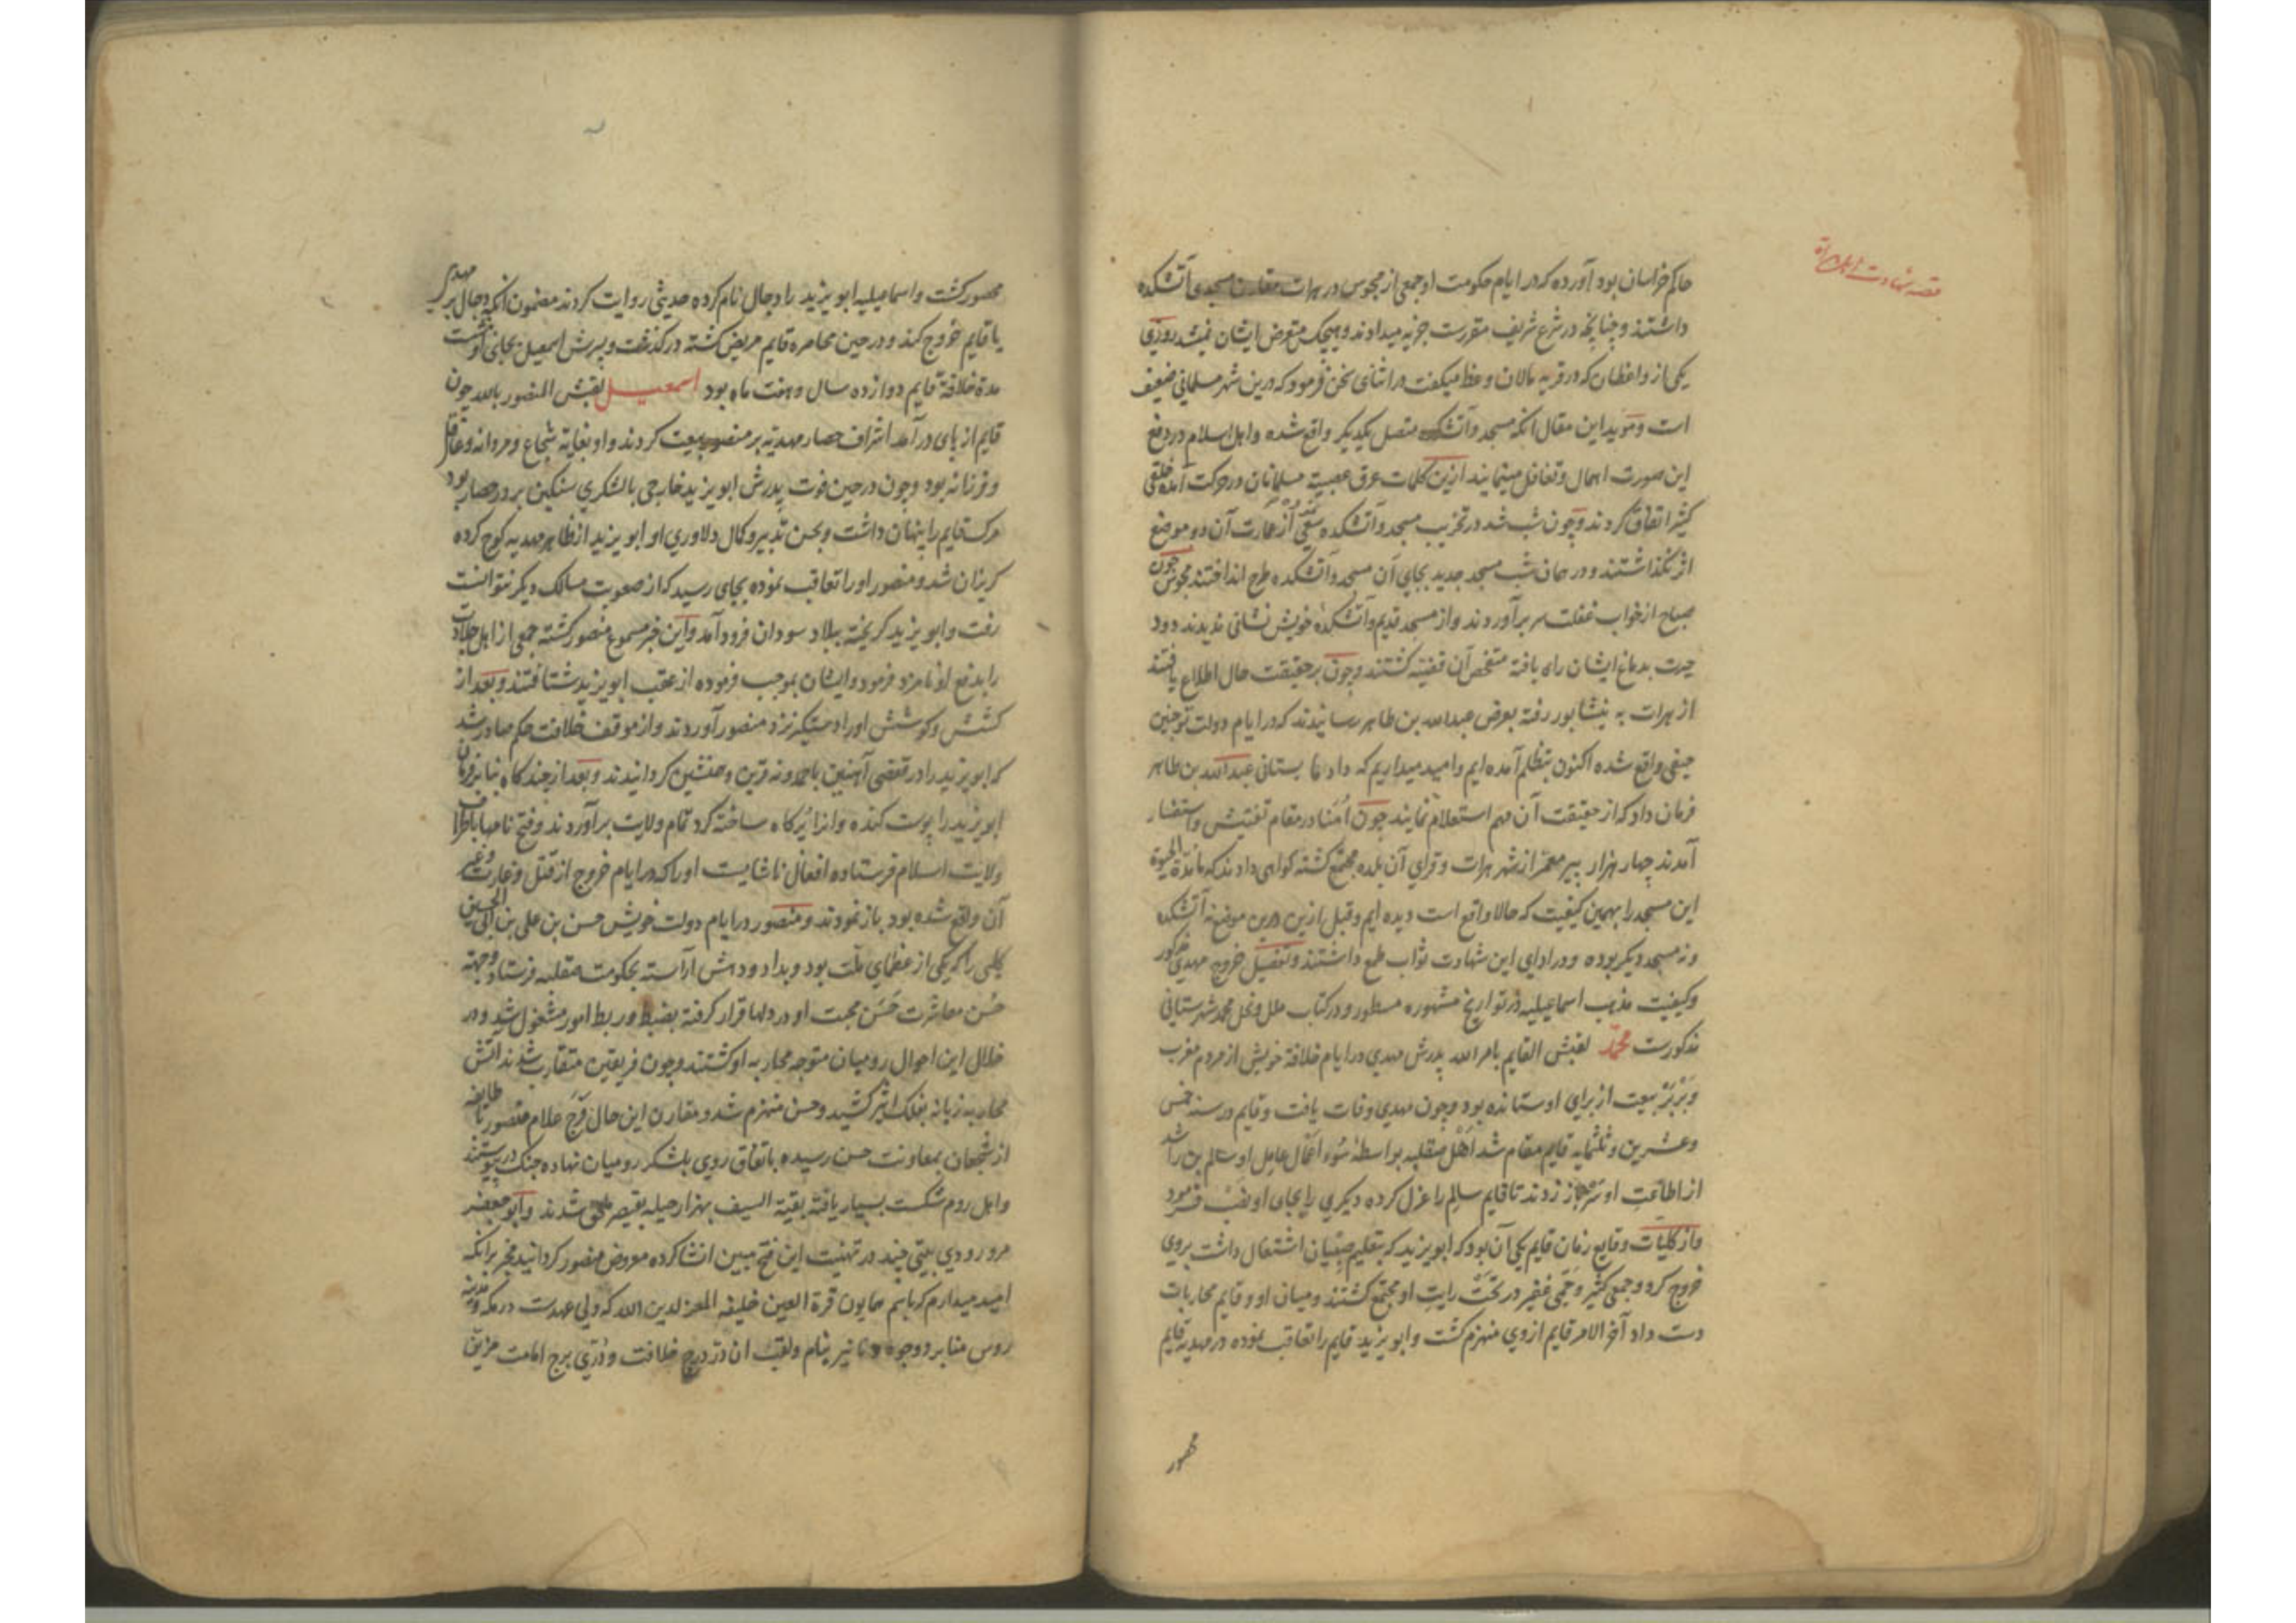 قصه شهادت اهل هراة
حاکم خراسان بود آورده که در ایام حکومت او جمعی از مجوس در هرات مقارن مسجدی آتشکده
داشتند و چنانچه در شرع شریف مقررست جزیه میدادند و هیچکس متعرض ایشان نمیشد روزی
یکی از واعظان که در قریه مالان وعظ میکفت در اثنای سخن فرمود که درین شهر مسلمانی ضعیف
است و موید این مقال انکه مسجد و آتشکده متصل یکدیکر واقع شده و اهل اسلام در دفع
این صورت اهمال و تغافل مینمایند ازین کلمات عرق عصبیت مسلمانان در حرکت آمده خلقی
کثیر اتفاق کردند و چون شب شد در تخریب مسجد و آتشکده سعی نموده از عمارت آن دو موضع
اثر نکذاشتند و در همان شب مسجد جدید بجای آن مسجد و آتشکده طرح انداختند مجوس چون
صباح از خواب غفلت سر برآوردند و از مسجد قدیم و آتشکده خویش نشانی ندیدند دود
حیرت بدماغ ایشان راه یافته متفحص آن قضیه کشتند و چون بر حقیقت حال اطلاع یافتند
از هرات به نیشابور رفته بعرض عبدالله بن طاهر رسانیدند که در ایام دولت تو چنین
حیفی واقع شده اکنون بتظلم آمده ایم و امید میداریم که داد ما بستانی عبدالله بن طاهر
فرمان داد که از حقیقت آن مهم استعلام نمایند چون امنا در مقام تفتیش و استفسار
آمدند چهار هزار پیر معمر از شهر هرات و قرای آن بلده مجتمع کشته کواهی دادند که ما مدة الحیوة
این مسجد را بهمین کیفیت که حالا واقع است دیده ایم و قبل ازین درین موضع نه آتشکده
و نه مسجد دیکر بوده و در ادای این شهادت ثواب طمع داشتند و تفصیل خروج مهدی مذکور
وکیفیت مذهب اسماعیلیه در تواریخ مشهوره مسطور و در کتاب ملل و نحل محمد شهرستانی
مذکورست محمد لقبش القایم بامر الله پدرش مهدی در ایام خلافة خویش از مردم مغرب
و بربر بیعت از برای او ستانده بود و چون مهدی وفات یافت و قایم در سنه خمس
و عشرین و ثلثمایه قایم مقام شد اهل صقلیه بواسطه سوء اعمال عامل او سالم بن راشد
از اطاعت او سر باز زدند تا قایم سالم را عزل کرده دیکری را بجای او نصب فرمود
و از کلیات وقایع زمان قایم یکی آن بود که ابو یزید که بتعلیم صبیان اشتغال داشت بروی
خروج کرد و جمعی کثیر و جمی غفیر در تحت رایت او مجتمع کشتند و میان او و قایم محاربات
دست داد آخر الامر قایم ازوی منهزم کشت و ابو یزید قایم را تعاقب نموده در مهدیه قایم
محصور کشت و اسماعیلیه ابو یزید را دجال نام کرده حدیثی روایت کردند مضمون انکه دجال بر مهدی
یا قایم خروج کند و در حین محاصره قایم مریض کشته در کذشت و پسرش اسمعیل بجای او نشست
مدة خلافة قایم دوازده سال و هفت ماه بود اسمعیل لقبش المنصور بالله چون
قایم از پای درآمد اشراف حصار مهدیه بر منصور بیعت کردند و او بغایة شجاع و مردانه و عاقل
و فرزانه بود و چون در حین فوت پدرش ابو یزید خارجی با لشکری سنکین بر در حصار بود
مرک قایم را پنهان داشت و بحسن تدبیر و کمال دلاوری او ابو یزید از ظاهر مهدیه کوچ کرده
کریزان شد و منصور او را تعاقب نموده بجای رسید که از صعوبت مسالک دیکر نتوانست
رفت و ابو یزید کریخته ببلاد سودان فرود آمد و این خبر مسموع منصور کشته جمعی از اهل جلادت
را بدفع او نامزد فرمود و ایشان بموجب فرموده از عقب ابو یزید شتافتند و بعد از
کشش و کوشش او را دستکیر نزد منصور آوردند و از موقف خلافت حکم صادر شد
که ابو یزید را در قفصی آهنین با بوزینه قرین و همنشین کردانیدند و بعد از چند کاه بنا بر فرمان
ابو یزید را پوست کنده و آنرا پرکاه ساخته کرد تمام ولایت برآوردند و فتح نامها باطراف
ولایت اسلام فرستاده افعال ناشایست او را که در ایام خروج از قتل و غارت و غیر
آن واقع شده بود باز نمودند و منصور در ایام دولت خویش حسن بن علی بن ابی الحسین
کلبی را که یکی از عظمای ملت بود و بداد و دهش آراسته بحکومت صقلیه فرستاد و جهة
حسن معاشرت حسن محبت او در دلها قرار کرفته بضبط و ربط امور مشغول شد و در
خلال این احوال رومیان متوجه محاربه او کشتند و چون فریقین متقارب شدند آتش
محاربه زبانه بفلک اثیر کشید و حسن منهزم شد و مقارن این حال فرج غلام منصور با طایفه
از شجعان بمعاونت حسن رسیده باتفاق روی بلشکر رومیان نهاده جنک در پیوستند
و اهل روم شکست بسیار یافته بقیة السیف بهزار حیله بقیصر ملحق شدند و ابو جعفر
مرورودی بیتی چند در تهنیت این فتح مبین انشا کرده معروض منصور کردانید مخبر برانکه
امید میدارم که باسم همایون قرة العین خلیفه المعز لدین الله که ولی عهدست در مکه و مدینه
روس منابر و وجوه دنانیر بنام و لقب ان در درج خلافت و دری برج امامت مزین